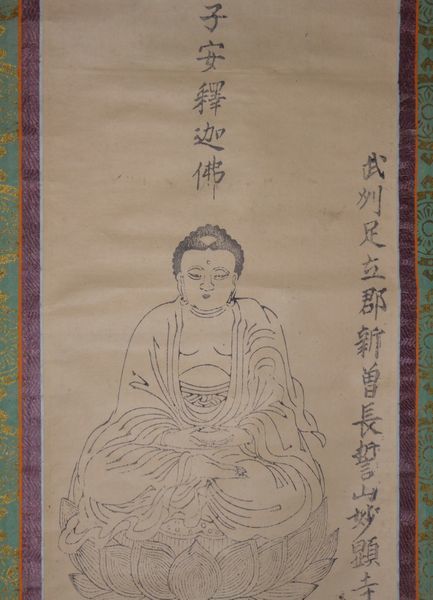 子安釋迦佛
武刕足立郡新曽長誓山妙顕寺